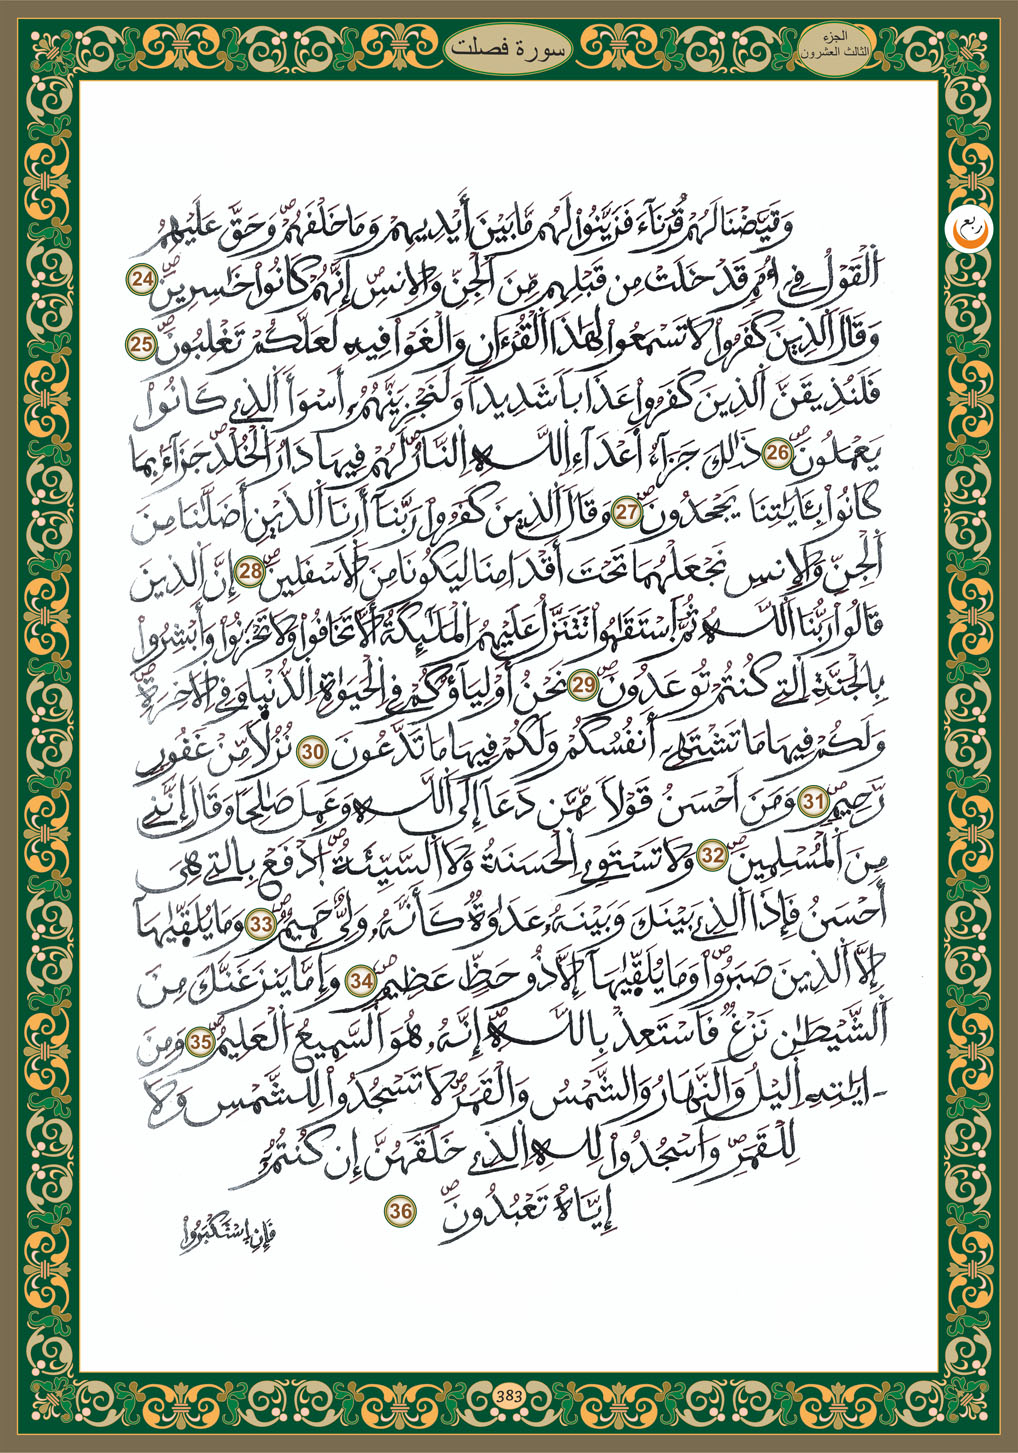 سورة فصلت
الجزء
الثالث العشرون
ربع
وَقَيَّضْنَا لَهُمْ قُرَنَآءَ فَزَيَّنُواْ لَهُم مَّا بَيْنَ أَيْدِيهِمْ وَمَا خَلْفَهُمْ وَحَقَّ عَلَيْهِمُ
اُ۬لْقَوْلُ فِے أُمَمٍ قَدْ خَلَتْ مِن قَبْلِهِم مِّنَ اَ۬لْجِنِّ وَالِانسِ إِنَّهُمْ كَانُواْ خَٰسِرِينَ 24
وَقَالَ اَ۬لذِينَ كَفَرُواْ لَا تَسْمَعُواْ لِهَٰذَا اَ۬لْقُرْءَانِ وَالْغَوْاْ فِيهِ لَعَلَّكُمْ تَغْلِبُونَ 25
فَلَنُذِيقَنَّ اَ۬لذِينَ كَفَرُواْ عَذَاباٗ شَدِيداٗ وَلَنَجْزِيَنَّهُمْ أَسْوَأَ اَ۬لذِے كَانُواْ
يَعْمَلُونَ 26 ذَٰلِكَ جَزَآءُ اَعْدَآءِ اِ۬للَّهِ اِ۬لنَّارُ لَهُمْ فِيهَا دَارُ اُ۬لْخُلْدِ جَزَآءَۢ بِمَا
كَانُواْ بِـَٔايَٰتِنَا يَجْحَدُونَ 27 وَقَالَ اَ۬لذِينَ كَفَرُواْ رَبَّنَآ أَرِنَا اَ۬لذَيْنِ أَضَلَّٰنَا مِنَ
اَ۬لْجِنِّ وَالِانسِ نَجْعَلْهُمَا تَحْتَ أَقْدَامِنَا لِيَكُونَا مِنَ اَ۬لَاسْفَلِينَ 28 إِنَّ اَ۬لذِينَ
قَالُواْ رَبُّنَا اَ۬للَّهُ ثُمَّ اَ۪سْتَقَٰمُواْ تَتَنَزَّلُ عَلَيْهِمُ اُ۬لْمَلَٰٓئِكَةُ أَلَّا تَخَافُواْ وَلَا تَحْزَنُواْ وَأَبْشِرُواْ
بِالْجَنَّةِ اِ۬لتِے كُنتُمْ تُوعَدُونَ 29 نَحْنُ أَوْلِيَآؤُكُمْ فِے اِ۬لْحَيَوٰةِ اِ۬لدُّنْي۪ا وَفِے اِ۬لَاخِرَةِ
وَلَكُمْ فِيهَا مَا تَشْتَهِےٓ أَنفُسُكُمْ وَلَكُمْ فِيهَا مَا تَدَّعُونَ 30 نُزُلاٗ مِّنْ غَفُورٖ
رَّحِيمٖ 31 وَمَنَ اَحْسَنُ قَوْلاٗ مِّمَّن دَعَآ إِلَي اَ۬للَّهِ وَعَمِلَ صَٰلِحاٗ وَقَالَ إِنَّنِے
مِنَ اَ۬لْمُسْلِمِينَ 32 وَلَا تَسْتَوِے اِ۬لْحَسَنَةُ وَلَا اَ۬لسَّيِّئَةُ اُ۪دْفَعْ بِالتِے هِيَ
أَحْسَنُ فَإِذَا اَ۬لذِے بَيْنَكَ وَبَيْنَهُۥ عَدَٰوَةٞ كَأَنَّهُۥ وَلِيٌّ حَمِيمٞ 33 وَمَا يُلَقّ۪يٰهَآ
إِلَّا اَ۬لذِينَ صَبَرُواْ وَمَا يُلَقّ۪يٰهَآ إِلَّا ذُو حَظٍّ عَظِيمٖ 34 وَإِمَّا يَنزَغَنَّكَ مِنَ
اَ۬لشَّيْطَٰنِ نَزْغٞ فَاسْتَعِذْ بِاللَّهِ إِنَّهُۥ هُوَ اَ۬لسَّمِيعُ اُ۬لْعَلِيمُ 35 وَمِنَ
ـ اٰيَٰتِهِ اِ۬ليْلُ وَالنَّهَارُ وَالشَّمْسُ وَالْقَمَرُ لَا تَسْجُدُواْ لِلشَّمْسِ وَلَا
لِلْقَمَرِ وَاسْجُدُواْ لِلهِ اِ۬لذِے خَلَقَهُنَّ إِن كُنتُمُۥٓ
إِيَّاهُ تَعْبُدُونَ 36
فَإِنِ اِ۪سْتَكْبَرُواْ
383